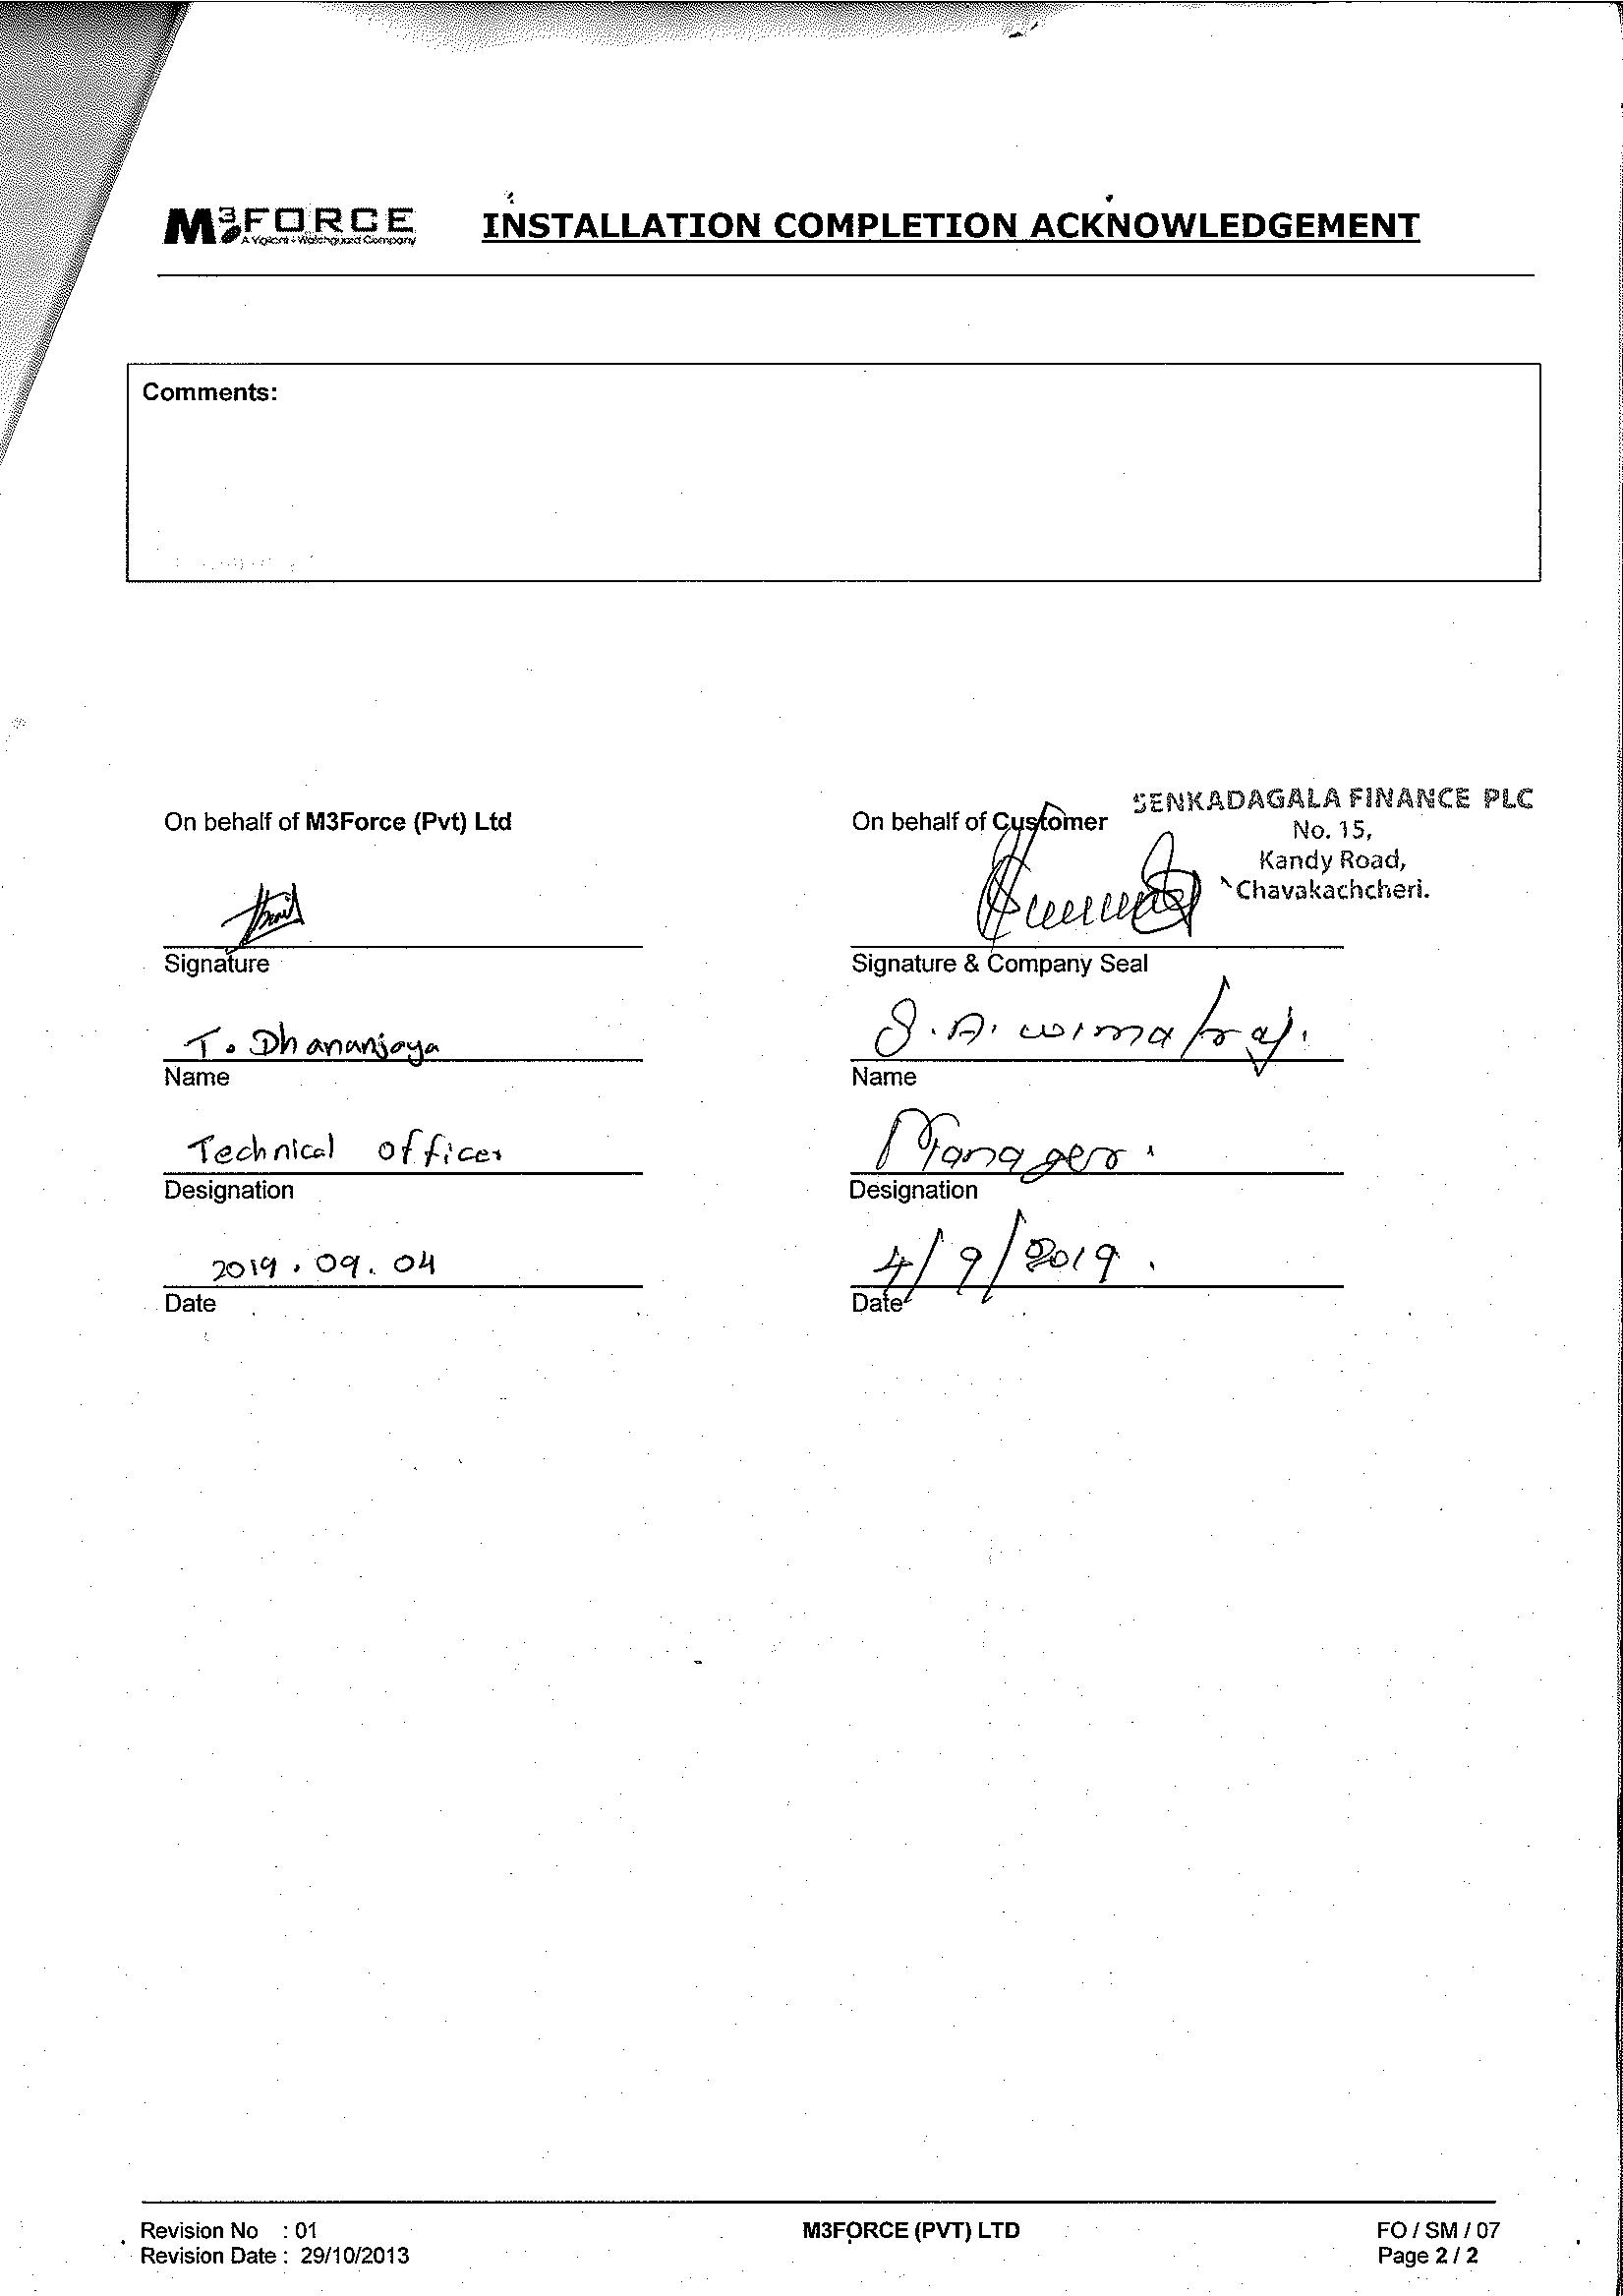 M3FORCE
A Vigilant - Watchguard Company
INSTALLATION COMPLETION ACKNOWLEDGEMENT
Comments:
On behalf of M3Force (Pvt) Ltd
Signature
T. Dhananjaya
Name
Technical officer
Designation
2019.09.04
Date
On behalf of Customer
SENKADAGALA FINANCE PLC
No. 15,
Kandy Road,
Chavakachcheri.
Signature & Company Seal
Name
Manager.
Designation
4/9/2019.
Date
Revision No : 01
Revision Date : 29/10/2013
M3FORCE (PVT) LTD
FO / SM / 07
Page 2 / 2